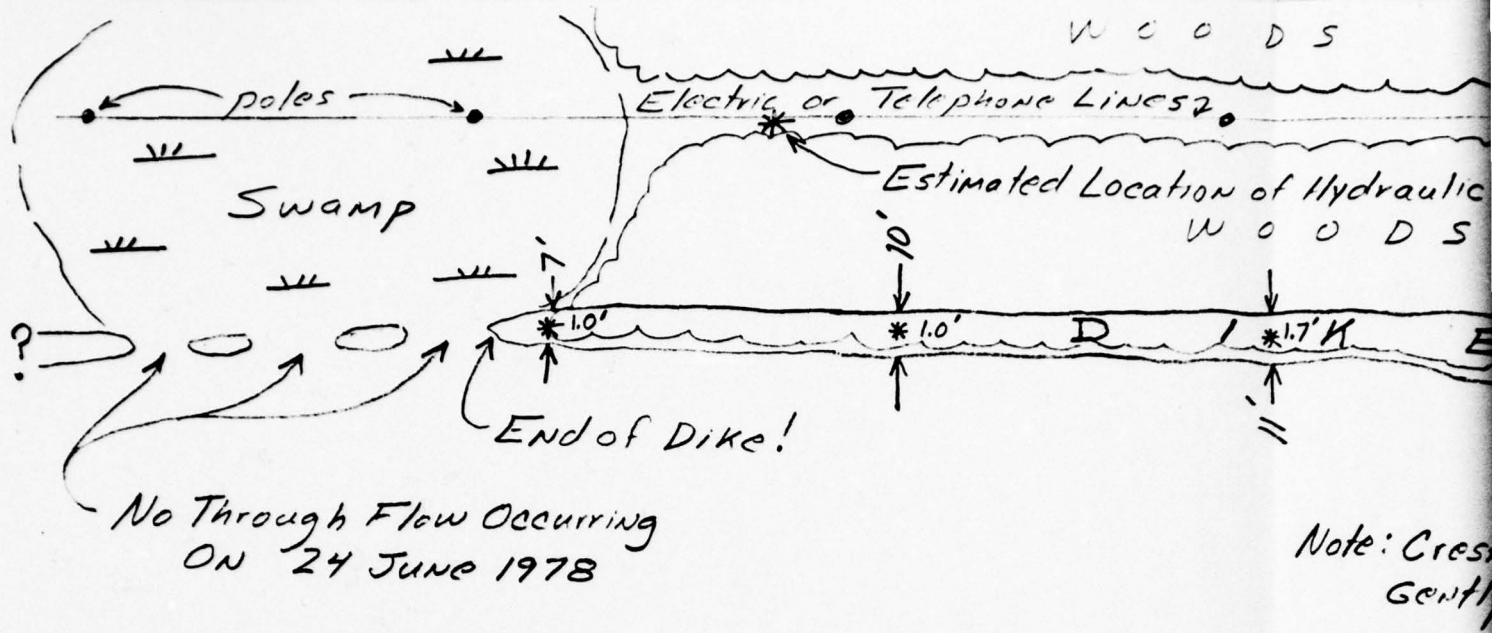 WOODS
poles
Electric or Telephone Lines
Estimated Location of Hydraulic
Swamp
WOODS
7'
10'
?
1.0'
1.0'
DIKE
1.7'
11'
End of Dike!
No Through Flow Occurring
On 24 June 1978
Note: Cres
Gentl